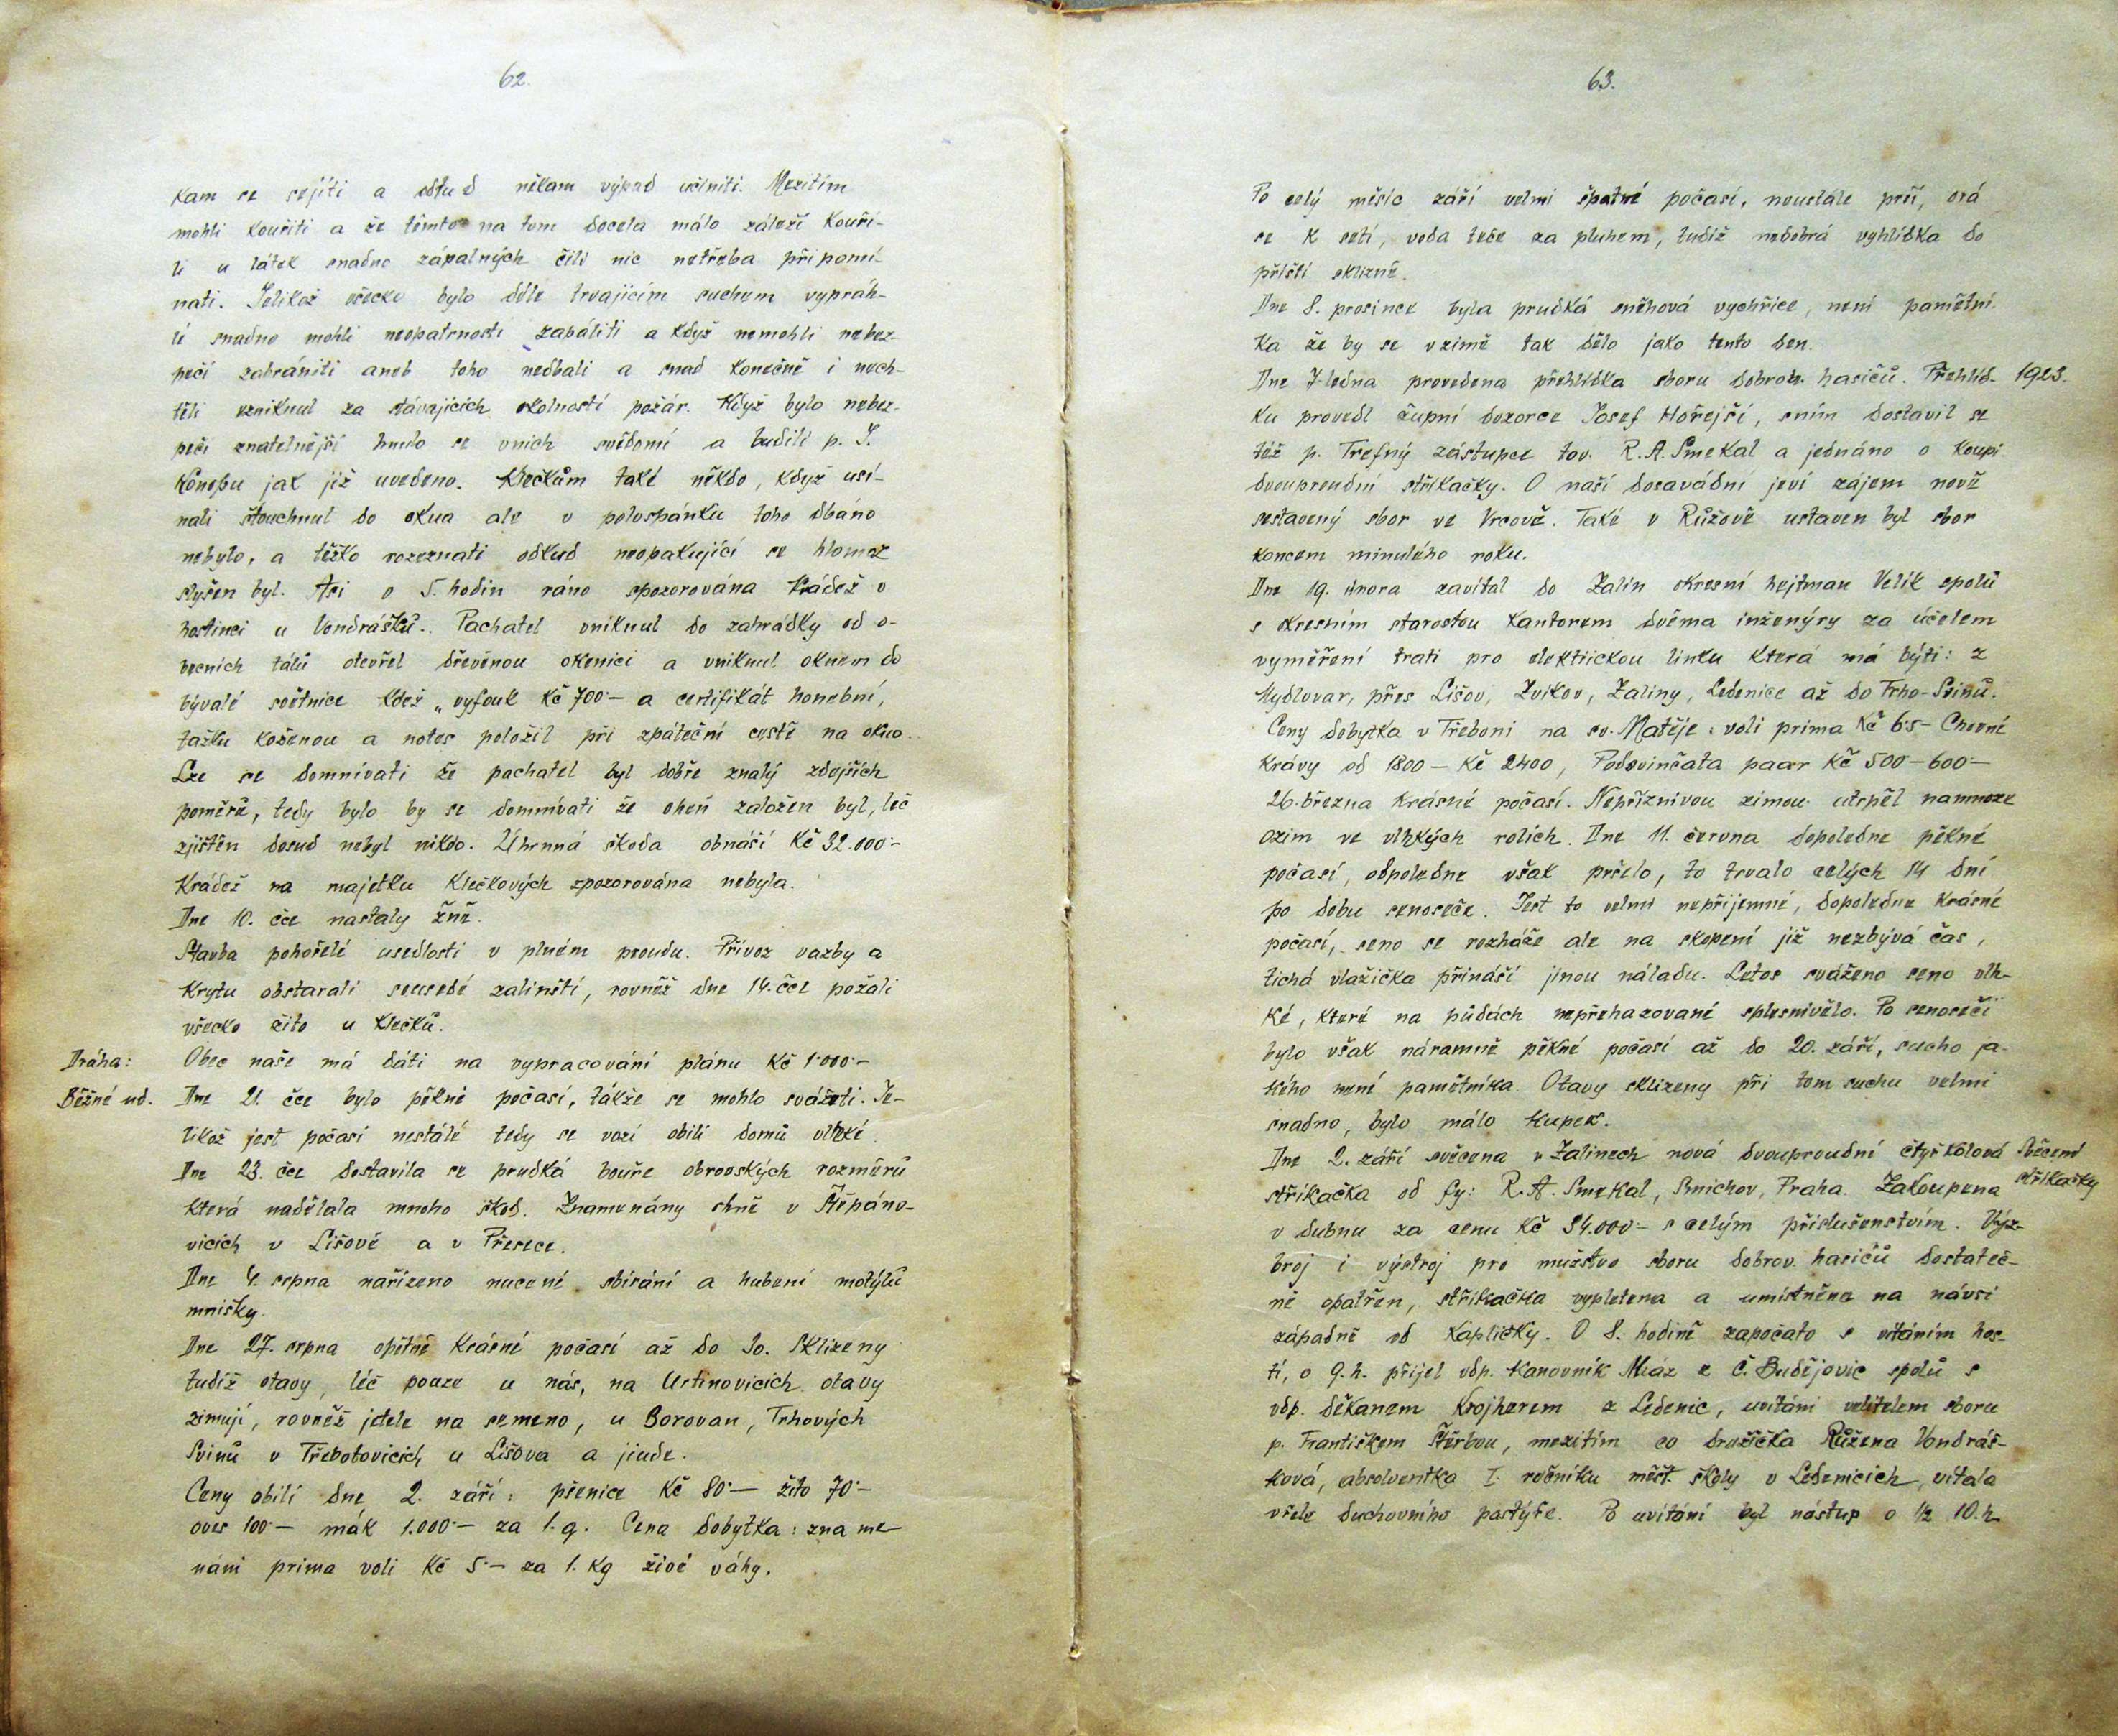 62.
kam se sejíti a odtud někam výpad učiniti. Mezitím
mohli kouřiti a že těmto na tom docela málo záleží kouří-
li u látek snadno zápalných čili nic netřeba připomí-
nati. Jelikož všecko bylo déle trvajícím suchem vypráh-
lé snadno mohli neopatrností zapáliti a když nemohli nebez-
pečí zabrániti aneb toho nedbali a snad konečně i nech-
těli vzniknul za stávajících okolností požár. Když bylo nebez-
pečí znatelnější hnulo se vnich svědomí a budili p. J.
Konopu jak již uvedeno. Klečkům také někdo, když usí-
nali šťouchnul do okna ale v polospánku toho dbáno
nebylo, a těžko rozeznati odkud neopakující se hlomoz
slyšen byl. Asi o 5. hodin ráno spozorována krádež v
hostinci u Vondrášků. Pachatel vniknul do zahrádky od o-
becních tálů otevřel dřevěnou okenici a vniknul oknem do
bývalé světnice kdež „vyfouk Kč 700·- a certifikát honební,
tažku koženou a notes položil při zpáteční cestě na okno.
Lze se domnívati že pachatel byl dobře znalý zdejších
poměrů, tedy bylo by se domnívati že oheň založen byl, leč
zjištěn dosud nebyl nikdo. Úhrnná škoda obnáší Kč 32.000·-
Krádež na majetku Klečkových zpozorována nebyla.
Dne 10. čce nastaly žně.
Stavba pohořelé usedlosti v plném proudu. Přívoz vazby a
krytu obstarali sousedé zalinští, rovněž dne 14. čce požali
všecko žito u Klečků.
Dráha: Obec naše má dáti na vypracování plánu Kč 1·000·-
Běžné ud. Dne 21. čce bylo pěkné počasí, tákže se mohlo svážeti. Je-
likož jest počasí nestálé tedy se vozí obilí domů vlhké.
Dne 23. čce dostavila se prudká bouře obrovských rozměrů
která nadělala mnoho škod. Znamenány ohně v Štěpáno-
vicích v Lišově a v Přesece.
Dne 4. srpna nařízeno nucené sbírání a hubení motýlů
mnišky.
Dne 27. srpna opětně krásné počasí až do 30. Sklizeny
tudíž otavy, léč pouze u nás, na Ortinovicích otavy
zimují, rovněž jetele na semeno, u Borovan, Trhových
Svinů v Třebotovicích u Lišova a jinde.
Ceny obilí dne 2. září: pšenice Kč 80·- žito 70·-
oves 100·- mák 1.000·- za 1.q. Cena dobytka: zname-
náni prima voli Kč 5·- za 1. kg živé váhy.
63.
Po celý měsíc září velmi špatné počasí, neustále prší, orá
se k setí, voda teče za pluhem, tudíž nedobrá vyhlídka do
příští sklizně.
Dne 8. prosince byla prudká sněhová vychřice, není pamětní-
ka že by se v zimě tak dělo jako tento den.
Dne 7. ledna provedena přehlídka sboru dobrov. hasičů. Přehlíd- 1923.
ku provedl župní dozorce Josef Hořejší, sním dostavil se
též p. Trefný zástupce tov. R. A. Smekal a jednáno o koupi
dvouproudní stříkačky. O naší dosavádní jeví zájem nově
sestavený sbor ve Vrcově. Také v Růžově ustaven byl sbor
koncem minulého roku.
Dne 19. února zavítal do Zalin okresní hejtman Velík spolu
s okresním starostou Kantorem dvěma inženýry za účelem
vyměření trati pro elektrickou linku která má býti: z
Mydlovar, přes Lišov, Zvikov, Zaliny, Ledenice až do Trho-Svinů.
Ceny dobytka v Třeboni na sv. Matěje: voli prima Kč 6·5- Chovné
krávy od 1800 - Kč 2400, Podsvinčata paar Kč 500-600·-
26. března krásné počasí. Nepříznivou zimou utrpěl namnoze
ozim ve vlhkých rolích. Dne 11. června dopoledne pěkné
počasí, odpoledne však pršelo, to trvalo celých 14 dní
po dobu senoseče. Jest to velmi nepříjemné, dopoledne krásné
počasí, seno se rozháže ale na skopení již nezbývá čas,
tichá vlažička přináší jinou náladu. Letos sváženo seno vlh-
ké, které na půdách nepřehazované splesnivělo. Po senoseči
bylo však náramně pěkné počasí až do 20. září, sucho ja-
kého není pamětníka. Otavy sklizeny při tom suchu velmi
snadno, bylo málo kupek.
Dne 2. září svěcena v Zalinech nová dvouproudní čtyřkolová Svěcení
stříkačka od fy: R. A. Smekal, Smichov, Praha. Zakoupena stříkačky
v dubnu za cenu Kč 34.000·- s celým příslušenstvím. Výz-
broj i výstroj pro mužstvo sboru dobrov. hasičů dostateč-
ně opatřen, stříkačka vypletena a umístněna na návsi
západně od kapličky. O 8. hodině započato s vítáním hos-
tí, o 9. h. přijel vdp. kanovník Mráz z Č. Budějovic spolu s
vdp. děkanem Krojherem z Ledenic, uvítáni velitelem sboru
p. Františkem Štěrbou, mezitím co družička Růžena Vondráš-
ková, absolventka I. ročníku měšť. školy v Ledenicích, vítala
vřele duchovního pastýře. Po uvítání byl nástup o ½ 10. h.